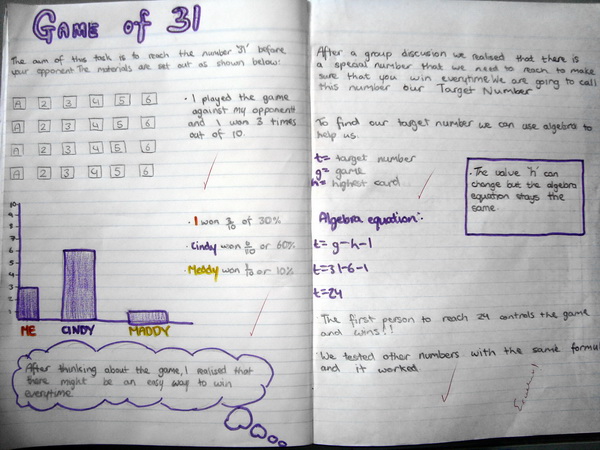 GAME OF 31
The aim of this task is to reach the number '31' before
your opponent. The materials are set out as shown below:
A 2 3 4 5 6
A 2 3 4 5 6
A 2 3 4 5 6
A 2 3 4 5 6
• I played the game
against my opponent
and I won 3 times
out of 10.
10
9
8
7
6
5
4
3
2
1
ME CINDY MADDY
• I won 3/10 of 30%
• Cindy won 6/10 or 60%
• Maddy won 1/10 or 10%
After thinking about the game, I realised that
there might be an easy way to win
everytime.
After a group discussion we realised that there is
a special number that we need to reach to make
sure that you win everytime. We are going to call
this number our Target Number
To find our target number we can use algebra to
help us.
t= target number
g= game
h= highest card
• The value 'h' can
change but the algebra
equation stays the
same.
Algebra equation:
t= g-h-1
t=31-6-1
t=24
The first person to reach 24 controls the game
and wins!!
We tested other numbers with the same formul
and it worked.